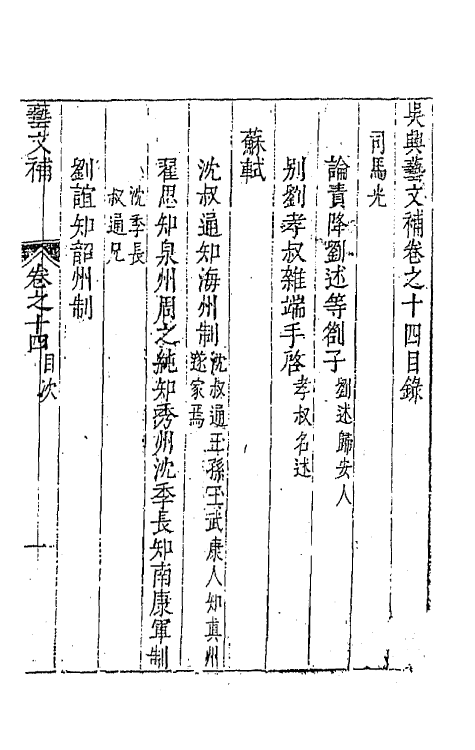 吳興藝文補卷之十四目錄
司馬光
論責降劉述等劄子劉述歸安人
別劉孝叔雜端手啓孝叔名述
蘇軾
沈叔通知海州制沈叔通王孫王武康人知真州
遂家焉
翟思知泉州周之純知秀州沈季長知南康軍制
沈季長
叔通兄
劉誼知韶州制
藝文補
卷之十四
目次
一